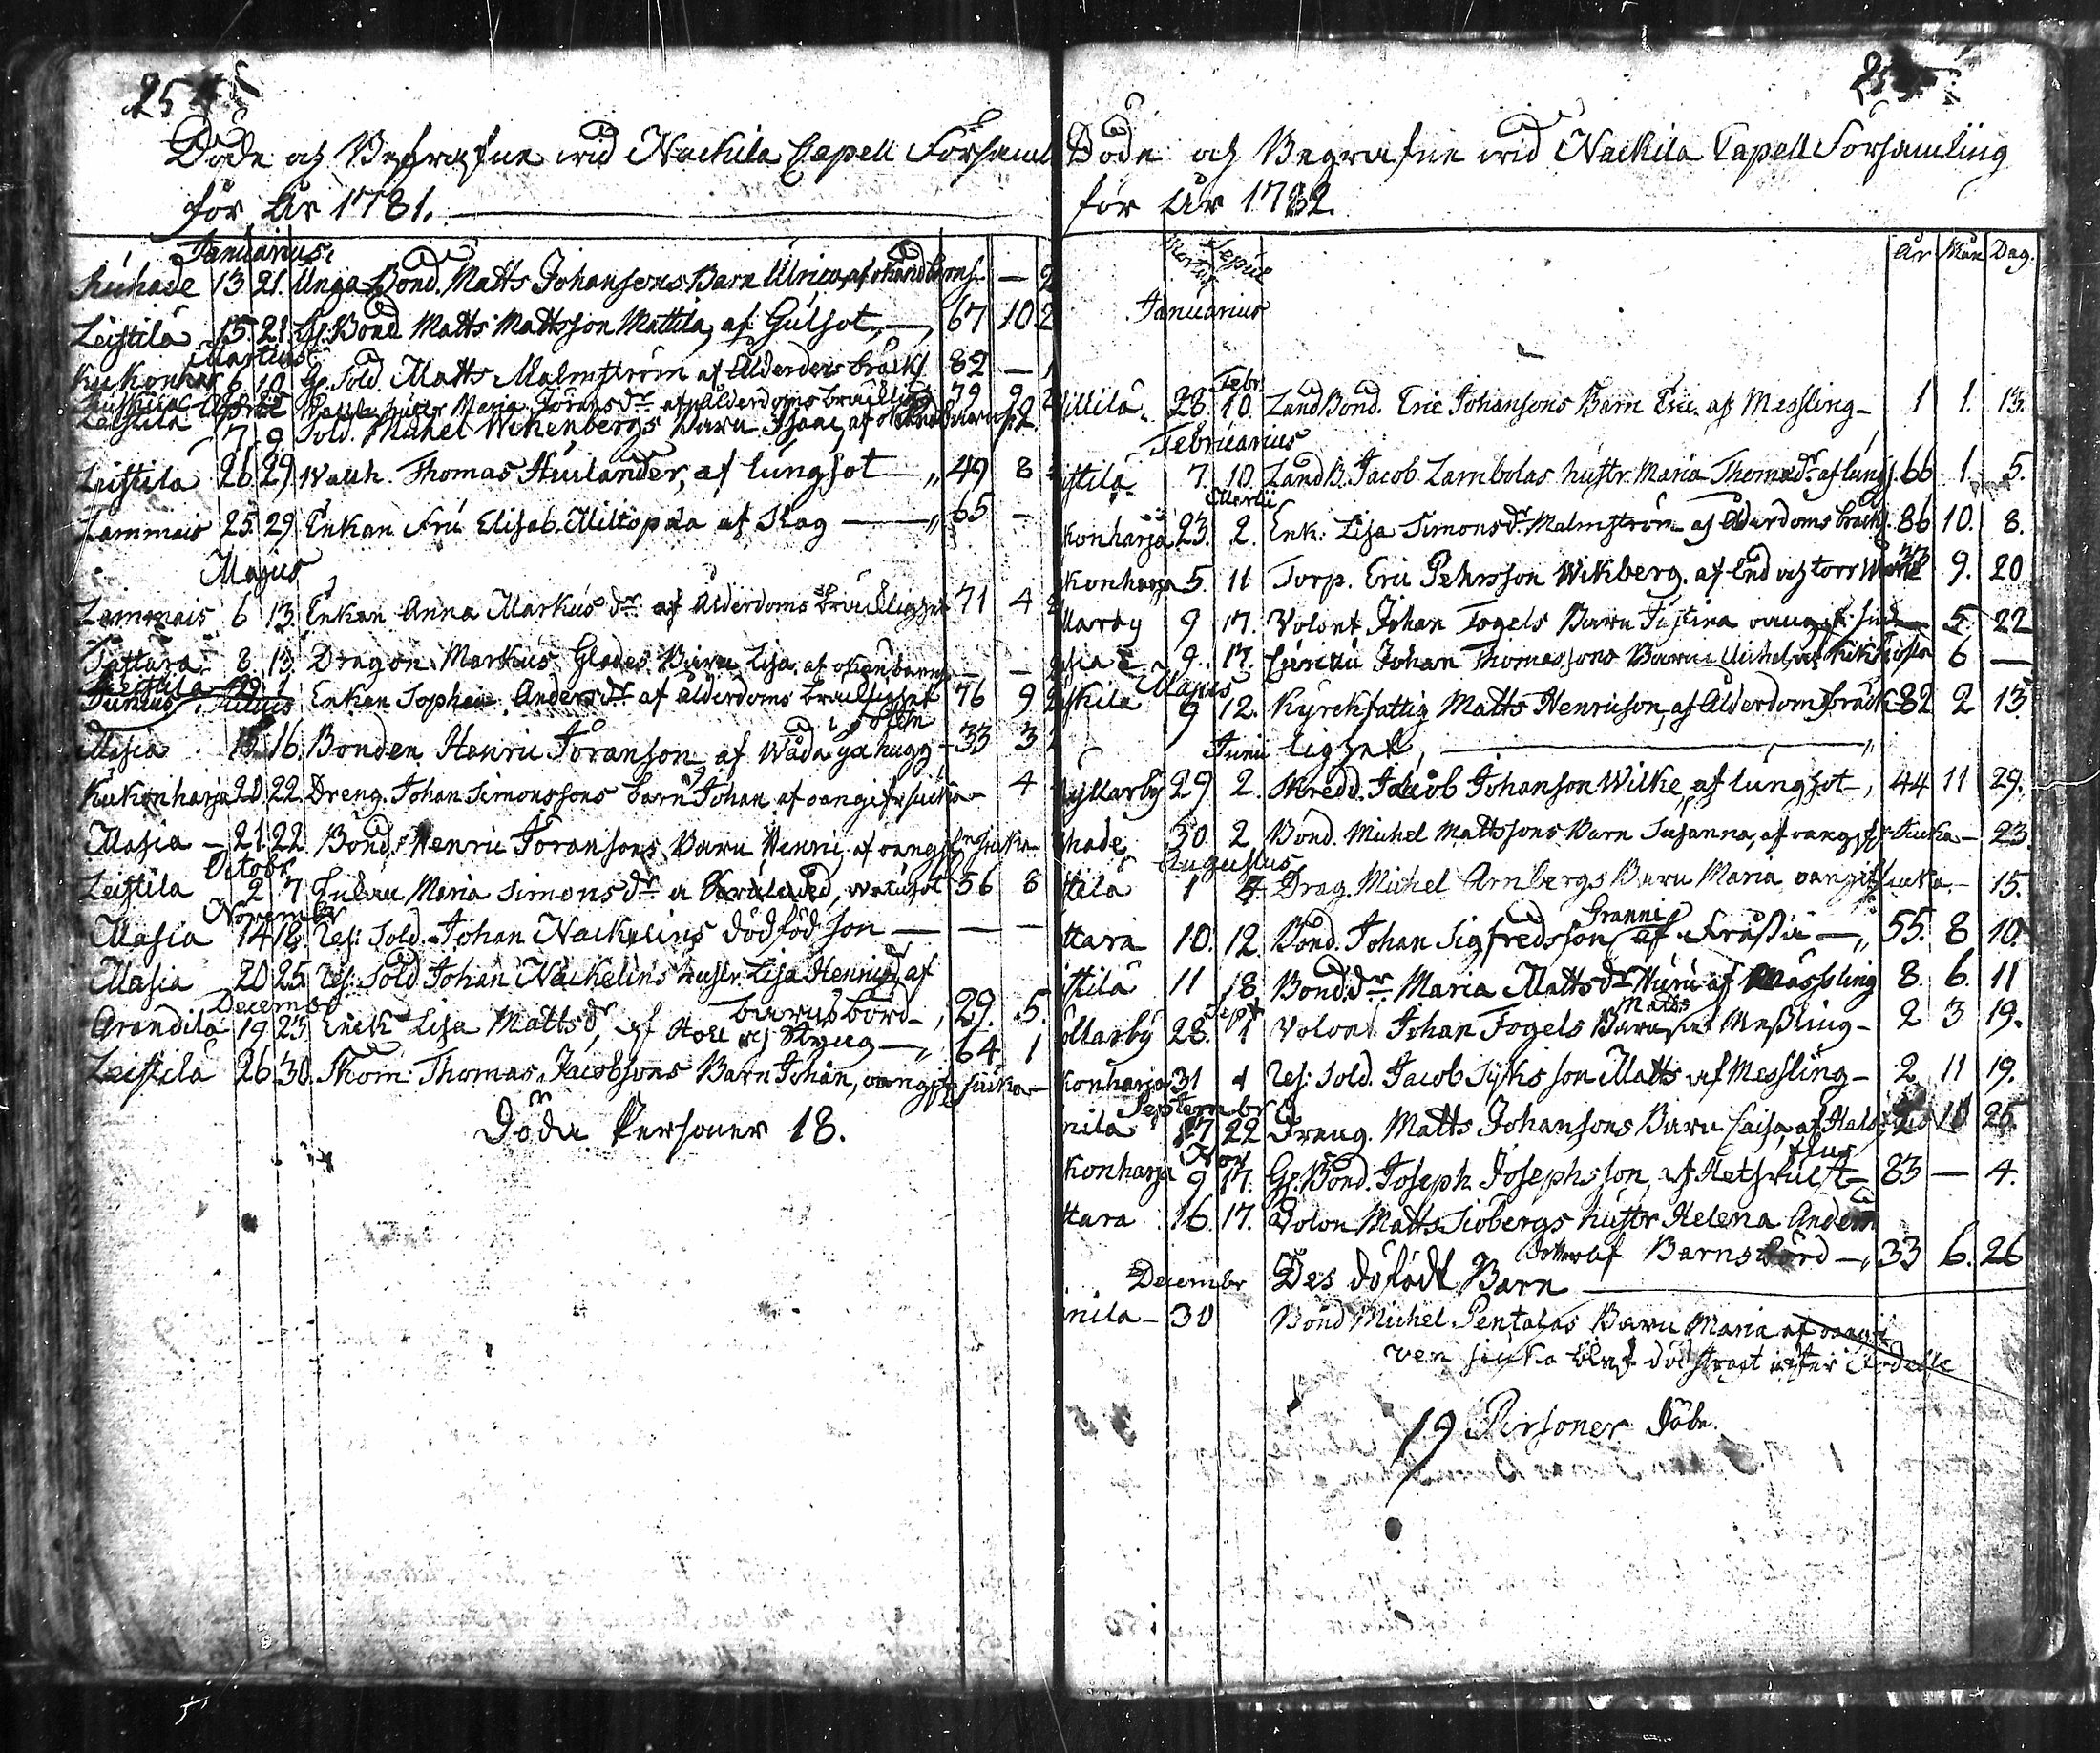 254
Döde och Begrafne wid Nackila Capell Församl
för År 1781.
Januarius.
Ruhade 13 21. Unga Bond. Matts Johansons Barn Ulrica, af —
Leistila 15. 21. Gl. Bond Matts Mattsson Mattila, af Gulsot, — 67 10 2
Martius
Kukonhar 6 10 Gl. Sold. Matts Malmström af Ålderdoms bräckl 82 —
April hustr Maria Jöransdr af Ålderdoms bräcklighet 79 9
Leistila 7 9 Sold. Michel Wikenbergs Barn Isaac, af 2.
Leistila 26 29 Thomas Hurlander, af lungsot — 49 8
Lammais 25. 29. Enkan Fru Elisab. Miltopæa af Slag — 65 —
Majus
Lammais 6 13 Enkan Anna Markusdr af Ålderdoms bräcklighet 71 4
Tattara 8. 13 Dragon Markus Glades Barn Lisa, af okän — —
Leistila
Junius Julius Enkan Sophia Andersdr af ålderdoms bräcklighet 76 9
i foten
Masia 16. Bonden Henric Jöranson af Wåda yx hugg — 33 3
Kukonharja 20 22. Dreng. Johan Simonssons barn Johan af oangifr siuka — 4
Masia — 21 22 Bond. Henric Jöransons Barn Henric, af oangif siuka
Octobr
Leistila 2 7 Enkan Maria Simonsdr 56 8
Novembr
Masia 14 18. Res: Sold. Johan Nackelins dödfödson — — —
Masia 20 25. Res: Sold Johan Näckelins hustr Lisa Henricsdr af
Decemb barnsbörd — 29. 5.
Arandila 19 23 Enck Lisa Mattsdr, af Håll och Styng — 64 1
Leistila 26 30. Skom: Thomas Jacobsons Barn Johan, oangifr siuka —
Döda Personer 18.
Döde och Begrafne wid Nackila Capell Församling
för År 1782.
År Mån Dag.
Januarius
Febr.
illila 28. 10. Land Bond. Eric Johansons Barn Eric. af Messling — 1 1. 13.
Februarius
istila 7. 10. Land B. Jacob Lambolas hustr. Maria Thomædr. af lungs. 66 1. 5.
Martii
konharja 23. 2. Enk. Lisa Simonsdr. Malmström af Ålderdoms bräckl. 86 10. 8.
konharja 5. 11 Torp. Eric Pehrsson Wikberg. af And och torr Werk 33 9. 20
llarby 9 17. Volont Johan Fogels Barn Justina oangif. siuk — 5. 22
asia 9. 17. Johan Thomassons Barn Michel, af Kikhosta 6 —
Majus
iskila 9 12. Kyrckfattig Matts Henricson, af Ålderdomsbräck 82 2 13.
Junii lighet, —
yllarby 29. 2. Skredd. Jacob Johanson Wilke, af lungsot —, 44 11 29.
hade 30. 2 Bond. Michel Mattssons Barn Susanna, af oangifr siuka — 23.
Augustus
tila 1 4. Drag. Michel Arnbergs Barn Maria oangif siuka, — 15.
Granni
ttara 10. 12. Bond. Johan Sigfredsson, af Fråßu — 55. 8 10.
istila 11 18. Bond.dr Maria Mattsdr Nuru af Mässling 8. 6. 11
Sept Matts
ollarby 28. 1 Volont Johan Fogels Barn af Meßling — 2 3 19.
konharja 31 1 Res: Sold. Jacob Sisks son Matts af Messling — 2 11 19.
Septembr
nila 17 22 Dreng. Matts Johansons Barn Caisa, af Hals 2 10 25.
Nov. fluss
konharja 9 17. Gl. Bond. Joseph Josephsson, af 83 — 4.
ttara 16. 17. Volon Matts Siöbergs hustr Helena Anders
dotter af Barnsbörd — 33 6. 26
Decembr Des döfödt Barn —
nila — 30 Bond Michel Pentalas Barn Maria af oangif
ven siuka blef död strart efter Födelse
19 Personer Döde.